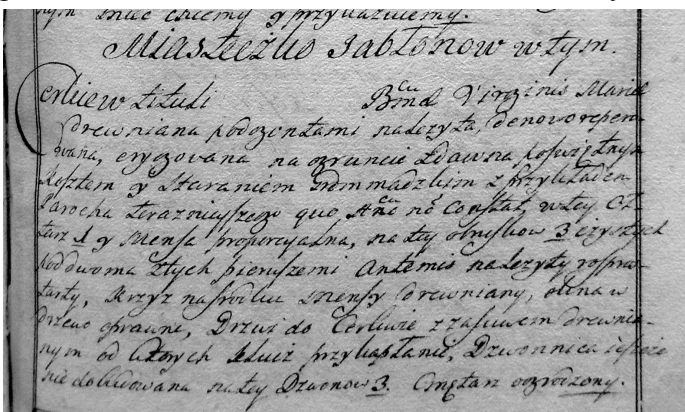 nym mieć chcemy y przykazuiemy.
Miasteczko Jabłonow w tym.
Cerkiew tituli Bmæ Virginis Mariæ
drewniana pod gontami należyta, denovo repero-
wana, erygowana na gruncie zdawna poświęconym
Kosztem y Staraniem Grommadzkim z przykładem
Parocha teraznieyszego quo Anno non constat, w tey Oł-
tarz 1 y Mensa proporcyalna, na tey obrusow 3 czystych
pod dwoma złych pierwszemi Antemis należyty rospos-
tarty, Krzyz na srodku Mensy drewniany, okna w
drzewo oprawne, Drzwi do Cerkwie z zasuwem drewnia-
nym od ktorych klucz przy kapłanie, Dzwonnica ieszcze
nie dobudowana na tey Dzwonow 3. Cmętarz ogrodzony.